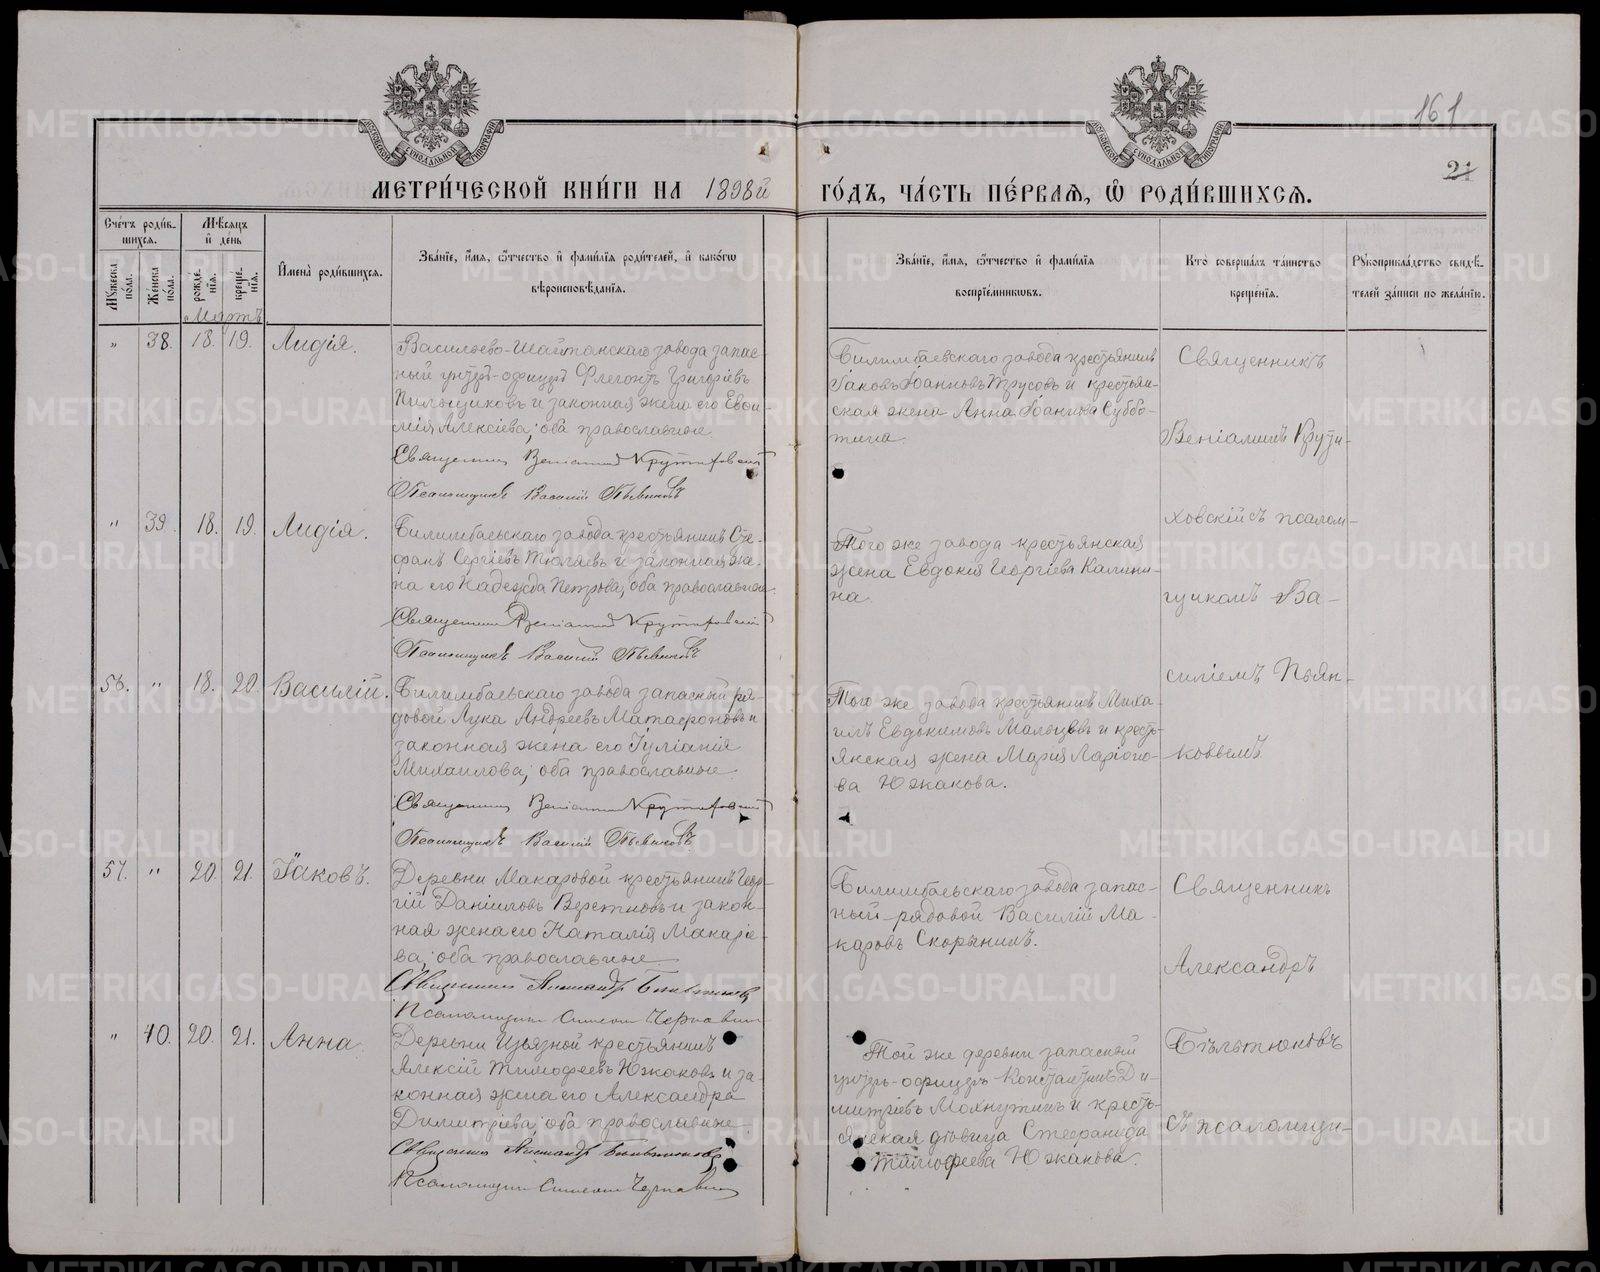 161
21
МЕТРИ́ЧЕСКОЙ КНИ́ГИ НА 1898й ГО́ДЪ, ЧА́СТЬ ПЕ́РВАЯ, Ѡ РОДИ́ВШИХСЯ.
Сче́тъ роди́в-
шихся.
Му́жеска по́ла.
Же́нска по́ла.
Мѣ́сяцъ
и де́нь
рожде́нія.
креще́нія.
Имена̀ роди́вшихся.
Зва́ніе, и́мя, ѻ́тчество и фами́лія роди́телей, и како́гѡ
вѣроисповѣ́данія.
Зва́ніе, и́мя, ѻ́тчество и фами́лія
воспріе́мниковъ.
Кто̀ соверша́лъ та́инство
креще́нія.
Рукоприкла́дство свидѣ́-
телей за́писи по жела́нію.
Мартъ
" 38. 18. 19. Лидія.
Васильево-Шайтанскаго завода запас-
ный унтеръ-офицеръ Флегонтъ Григоріевъ
Пильщиковъ и законная жена его Евѳи-
мія Алексіева, оба православные
Священникъ Веніаминъ Крутиховскій
Псаломщикъ Василій Пьянковъ
Билимбаевскаго завода крестьянинъ
Іаковъ Іоанновъ Трусовъ и крестьян-
ская жена Анна Іоаннова Суббо-
тина.
Священникъ
Веніаминъ Крути-
ховскій съ псалом-
щикомъ Ва-
силіемъ Пьян-
ковымъ
" 39. 18. 19. Лидія.
Билимбаевскаго завода крестьянинъ Сте-
фанъ Сергіевъ Тягаевъ и законная же-
на его Надежда Петрова, оба православные.
Священникъ Веніаминъ Крутиховскій
Псаломщикъ Василій Пьянковъ
Того же завода крестьянская
жена Евдокія Георгіева Калини-
на.
56. " 18. 20. Василій.
Билимбаевскаго завода запасный ря-
довой Лука Андреевъ Матафоновъ и
законная жена его Іуліанія
Михаилова, оба православные.
Священникъ Веніаминъ Крутиховскій
Псаломщикъ Василій Пьянковъ
Того же завода крестьянинъ Миха-
илъ Евдокимовъ Мальцевъ и кресть-
янская жена Марія Ларіоно-
ва Южакова.
57. " 20. 21. Іаковъ.
Деревни Макаровой крестьянинъ Геор-
гій Даніиловъ Веретновъ и закон-
ная жена его Наталія Макаріе-
ва, оба православные
Священникъ Александръ Бѣльтюковъ
Псаломщикъ Симеонъ Чернавинъ
Билимбаевскаго завода запас-
ный рядовой Василій Ма-
каровъ Скорынинъ.
Священникъ
Александръ
Бѣльтюковъ
съ псаломщи-
" 40. 20. 21. Анна
Деревни Извязной крестьянинъ
Алексій Тимофеевъ Южаковъ и за-
конная жена его Александра
Димитріева, оба православные
Священникъ Александръ Бѣльтюковъ
Псаломщикъ Симеонъ Чернавинъ
Той же деревни запасный
унтеръ-офицеръ Константинъ Ди-
митріевъ Махнутинъ и кресть-
янская дѣвица Стефанида
Тимофеева Южакова.
METRIKI.GASO-URAL.RU